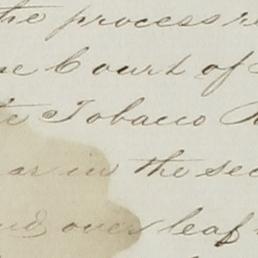 the process
Court of
Tobacco
in the sec
over leaf